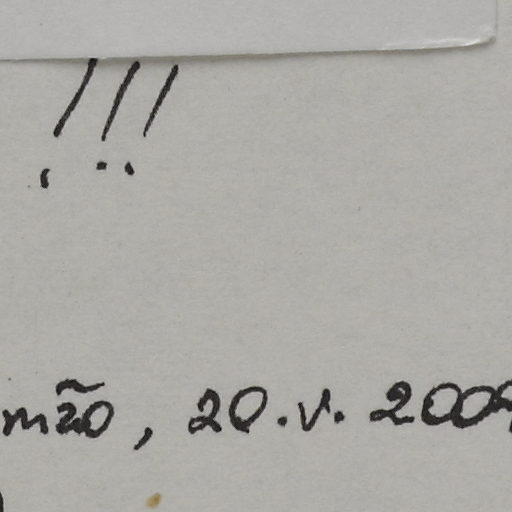 !!!
mão, 20.V.200